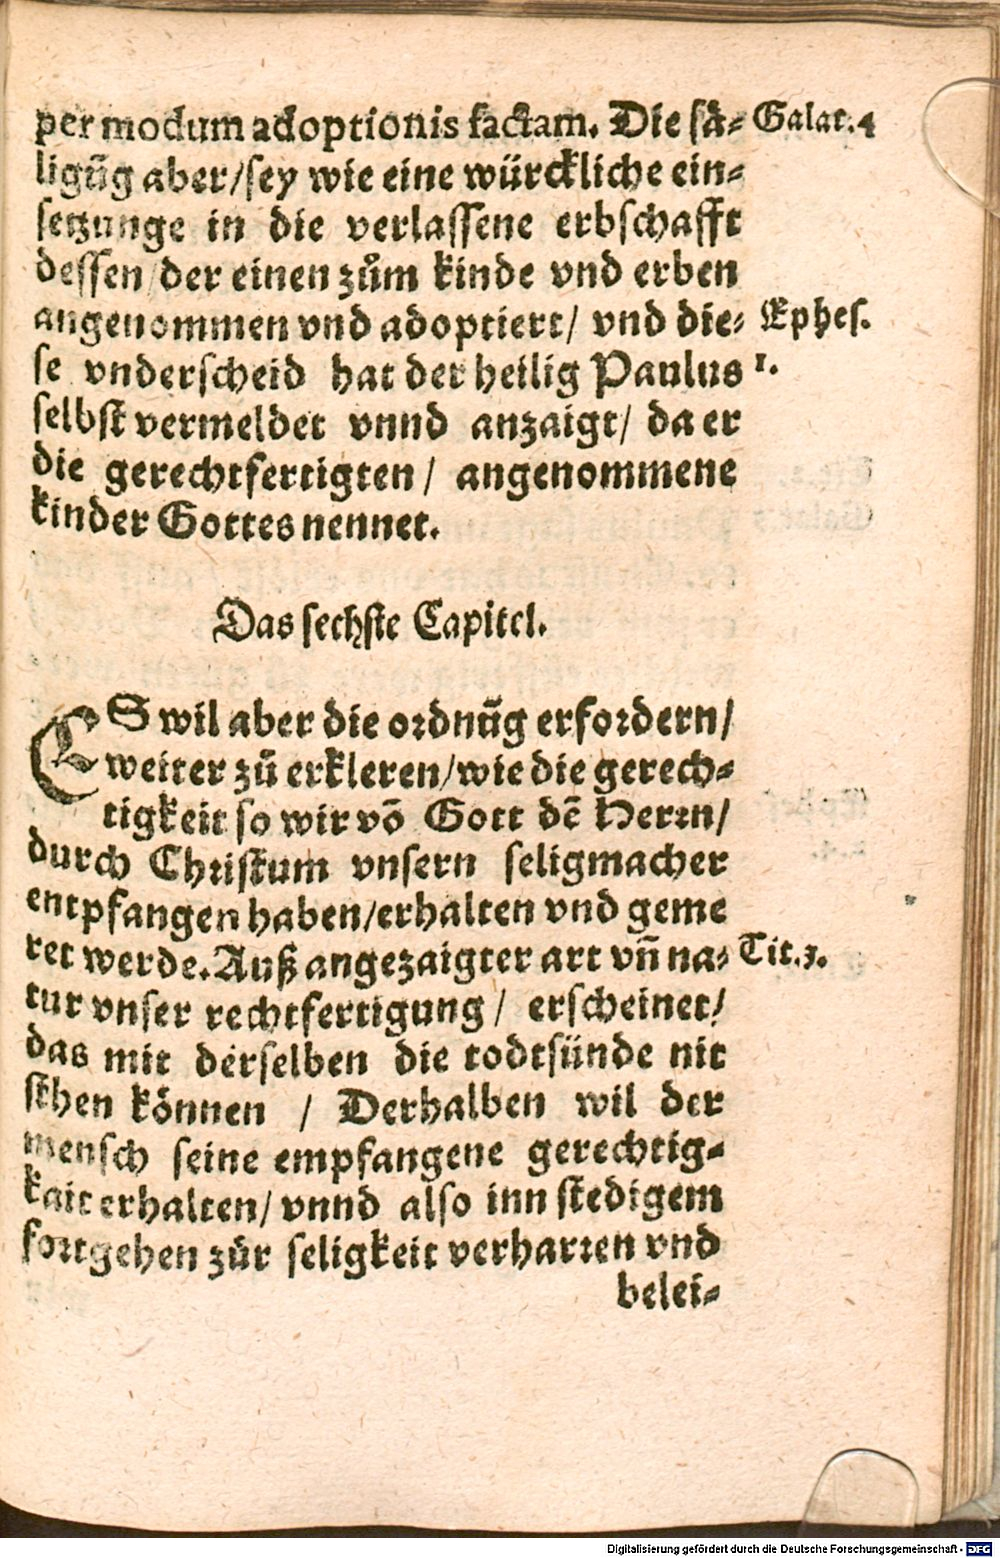 per modum adoptionis factam. Die sä-
Galat. 4
ligūg aber/sey wie eine würckliche ein-
setzunge in die verlassene erbschafft
dessen der einen zům kinde vnd erben
angenommen vnd adoptiert/ vnd die-
Ephes.
se vnderscheid hat der heilig Paulus
1.
selbst vermeldet vnnd anzaigt/ da er
die gerechtfertigten/ angenommene
kinder Gottes nennet.
Das sechste Capitel.
ES wil aber die ordnūg erfordern/
weiter zů erkleren/wie die gerech-
tigkeit so wir vō Gott dē Herrn/
durch Christum vnsern seligmacher
entpfangen haben/erhalten vnd geme
ret werde. Auß angezaigter art vn̄ na-
Tit. 3.
tur vnser rechtfertigung/ erscheinet/
das mit derselben die todtsünde nit
sthen können / Derhalben wil der
mensch seine empfangene gerechtig-
kait erhalten/ vnnd also inn stedigem
fortgehen zůr seligkeit verharren vnd
belei-
Digitalisierung gefördert durch die Deutsche Forschungsgemeinschaft - DFG